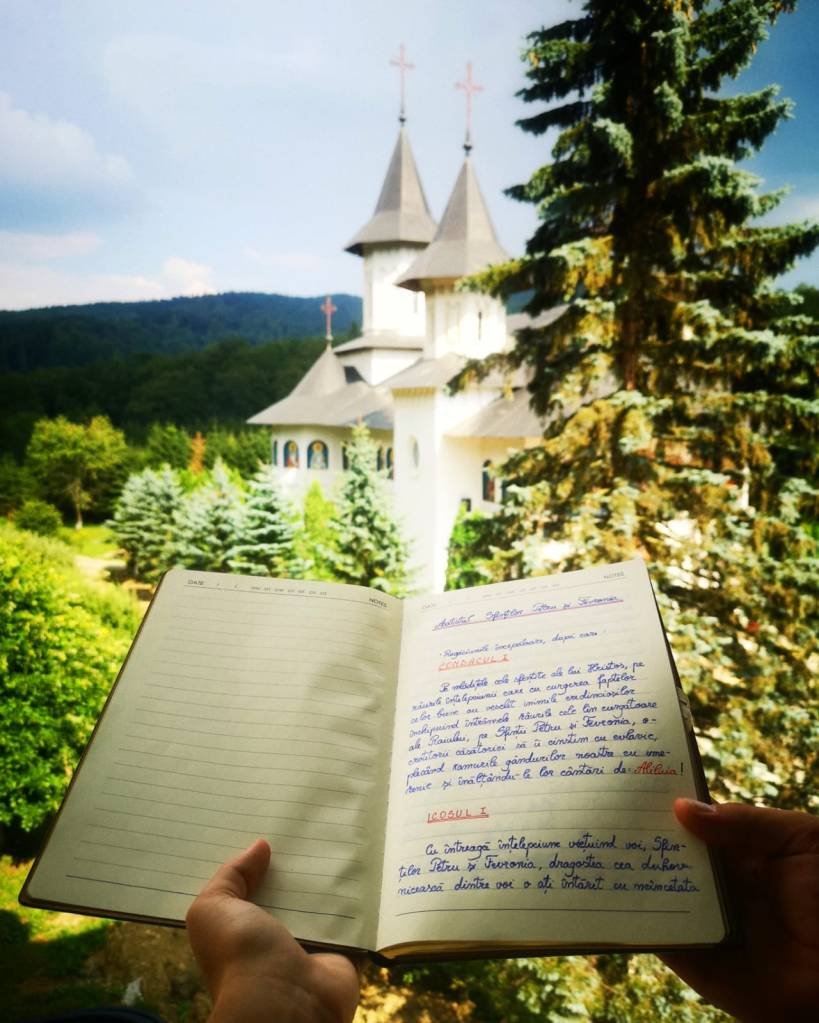 DATE
NOTES
DATE
NOTES
Acatistul Sfinților Petru și Fevronia
Rugăciunile începătoare, după care:
CONDACUL I
Pe mlădițele cele sfințite ale lui Hristos, pe
râurile înțelepciunii care cu curgerea faptelor
celor bune au veselit inimile credincioșilor
închipuind întrânsele râurile cele lin curgătoare
ale Raiului, pe Sfinții Petru și Fevronia, o-
crotitorii căsătoriei să îi cinstim cu evlavie,
plecând ramurile gândurilor noastre cu sme-
renie și înălțându-le lor cântări de: Aliluia!
ICOSUL I
Cu întreagă înțelepciune viețuind voi, Sfin-
ților Petru și Fevronia, dragostea cea duhov-
nicească dintre voi o ați întărit cu neîncetata